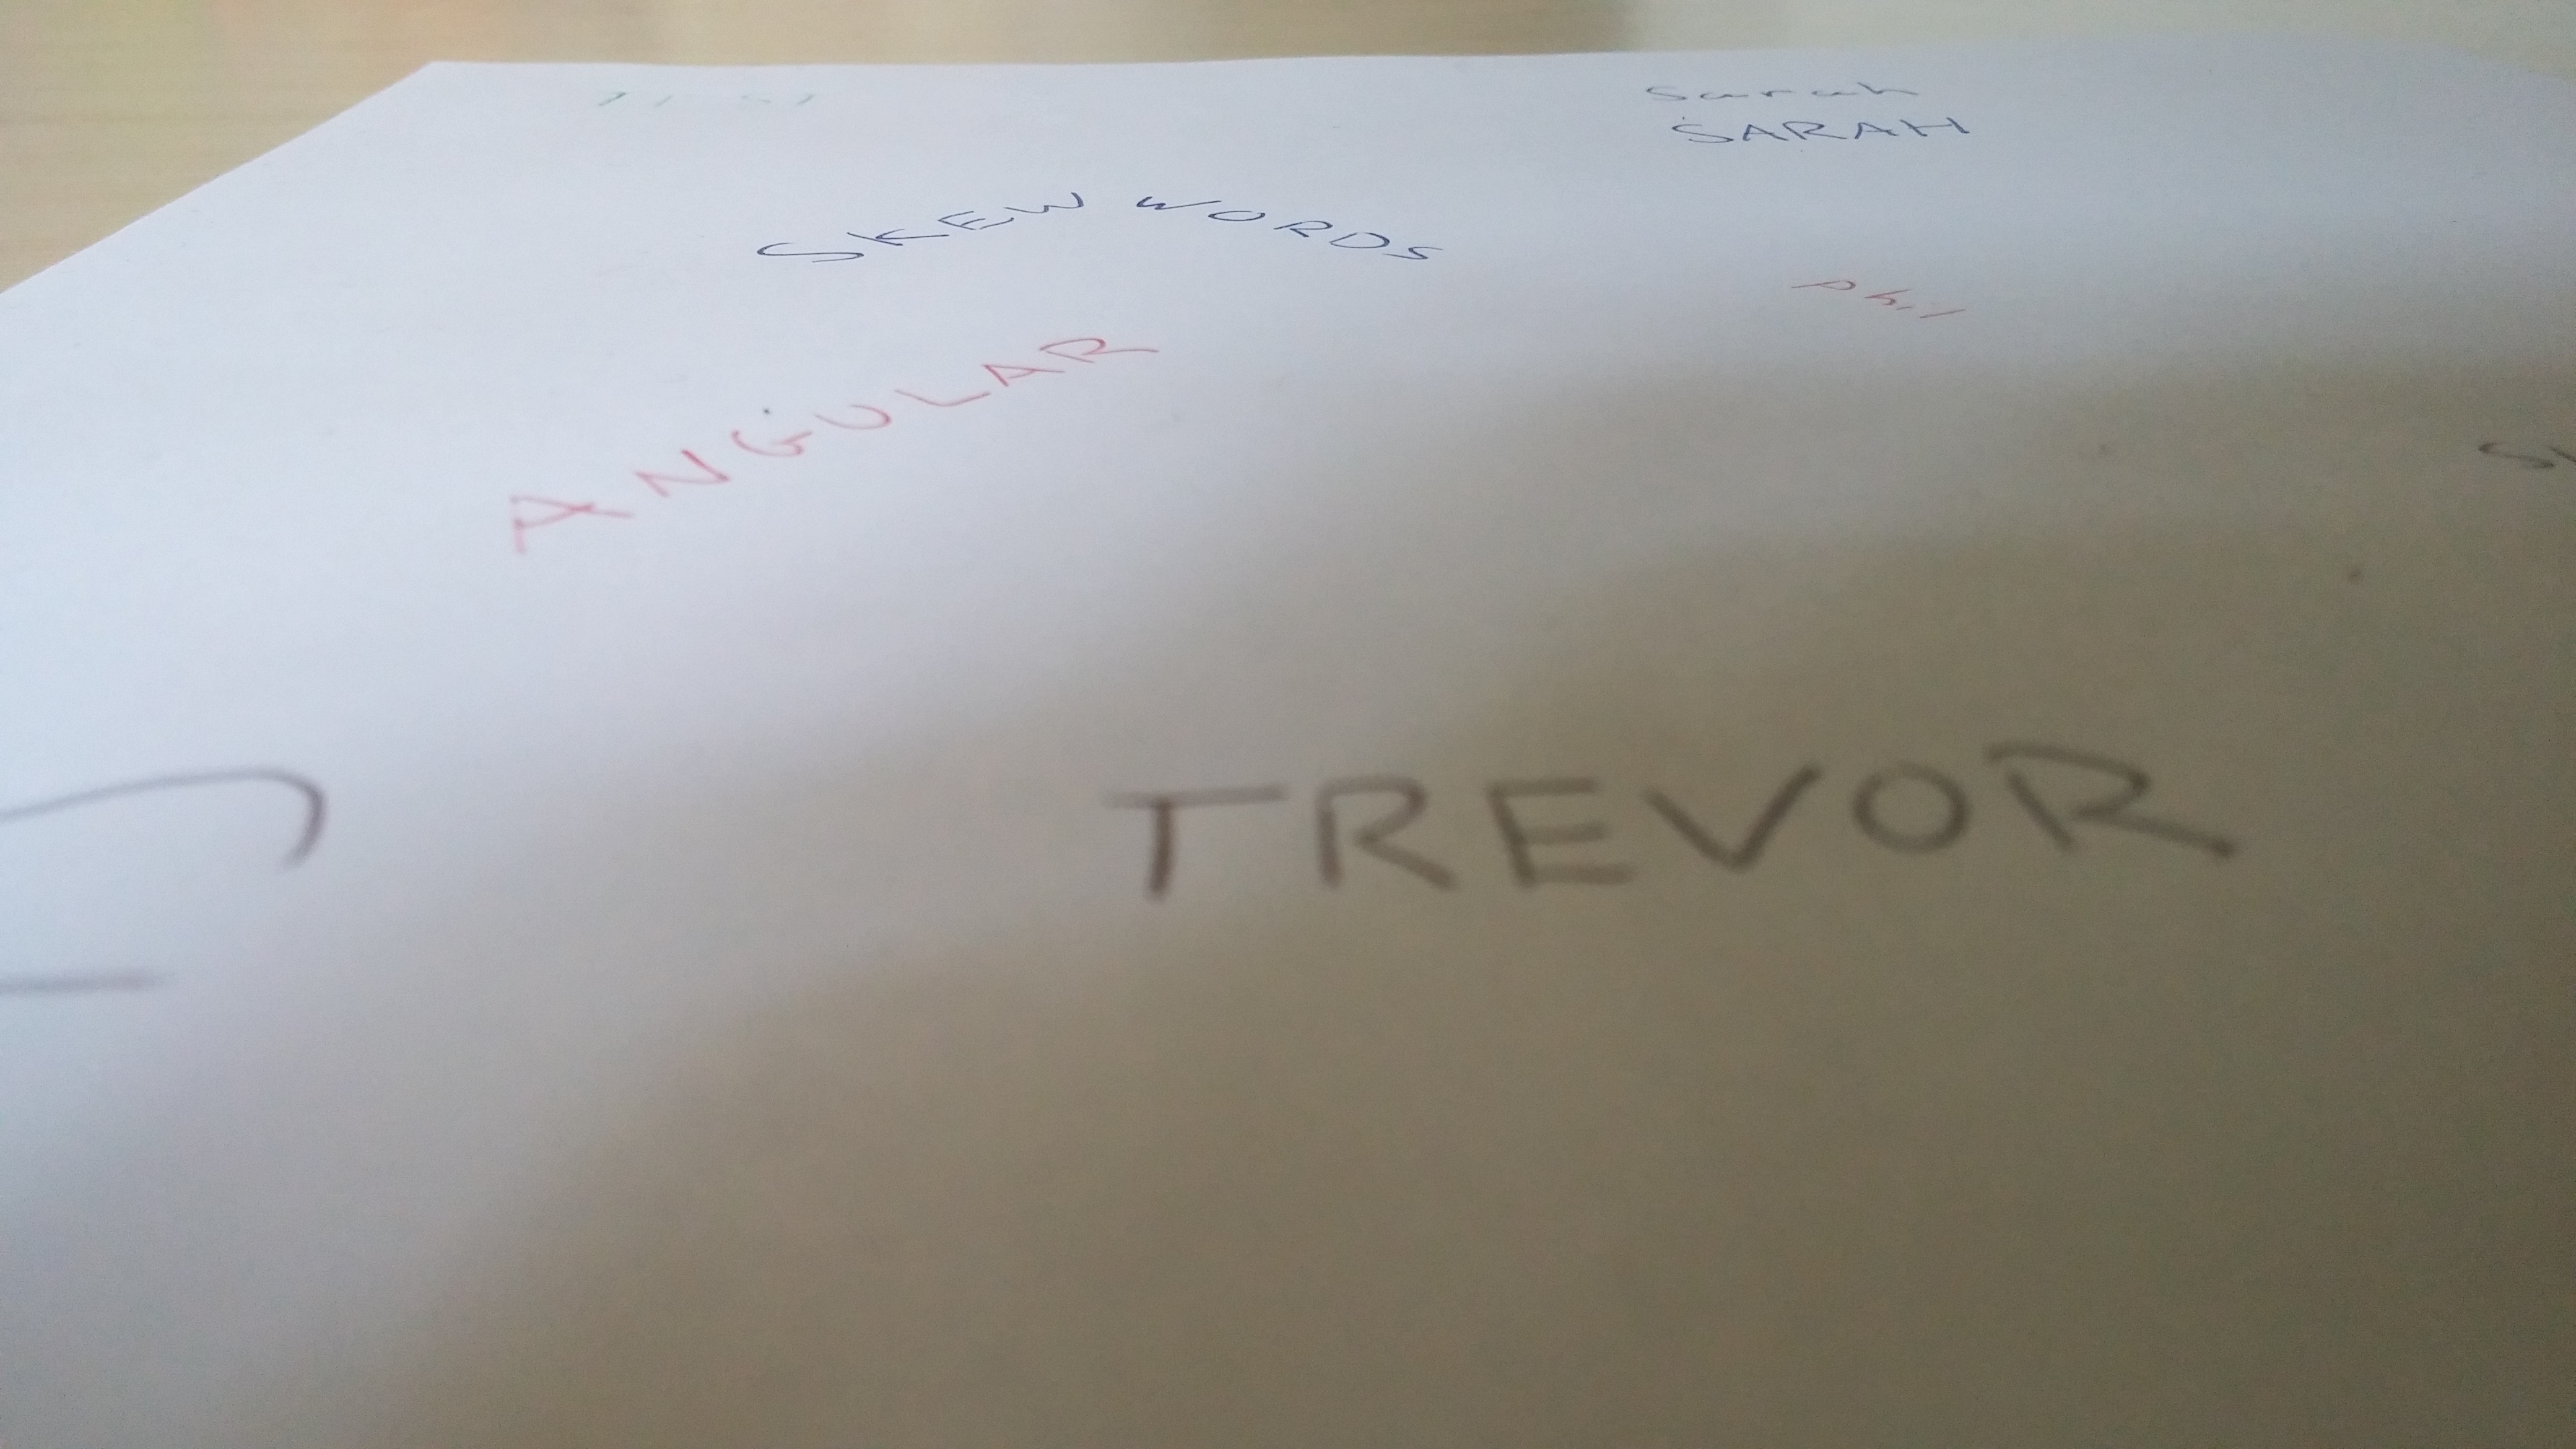 Sarah
SARAH
SKEW WORDS
Phil
ANGULAR
TREVOR